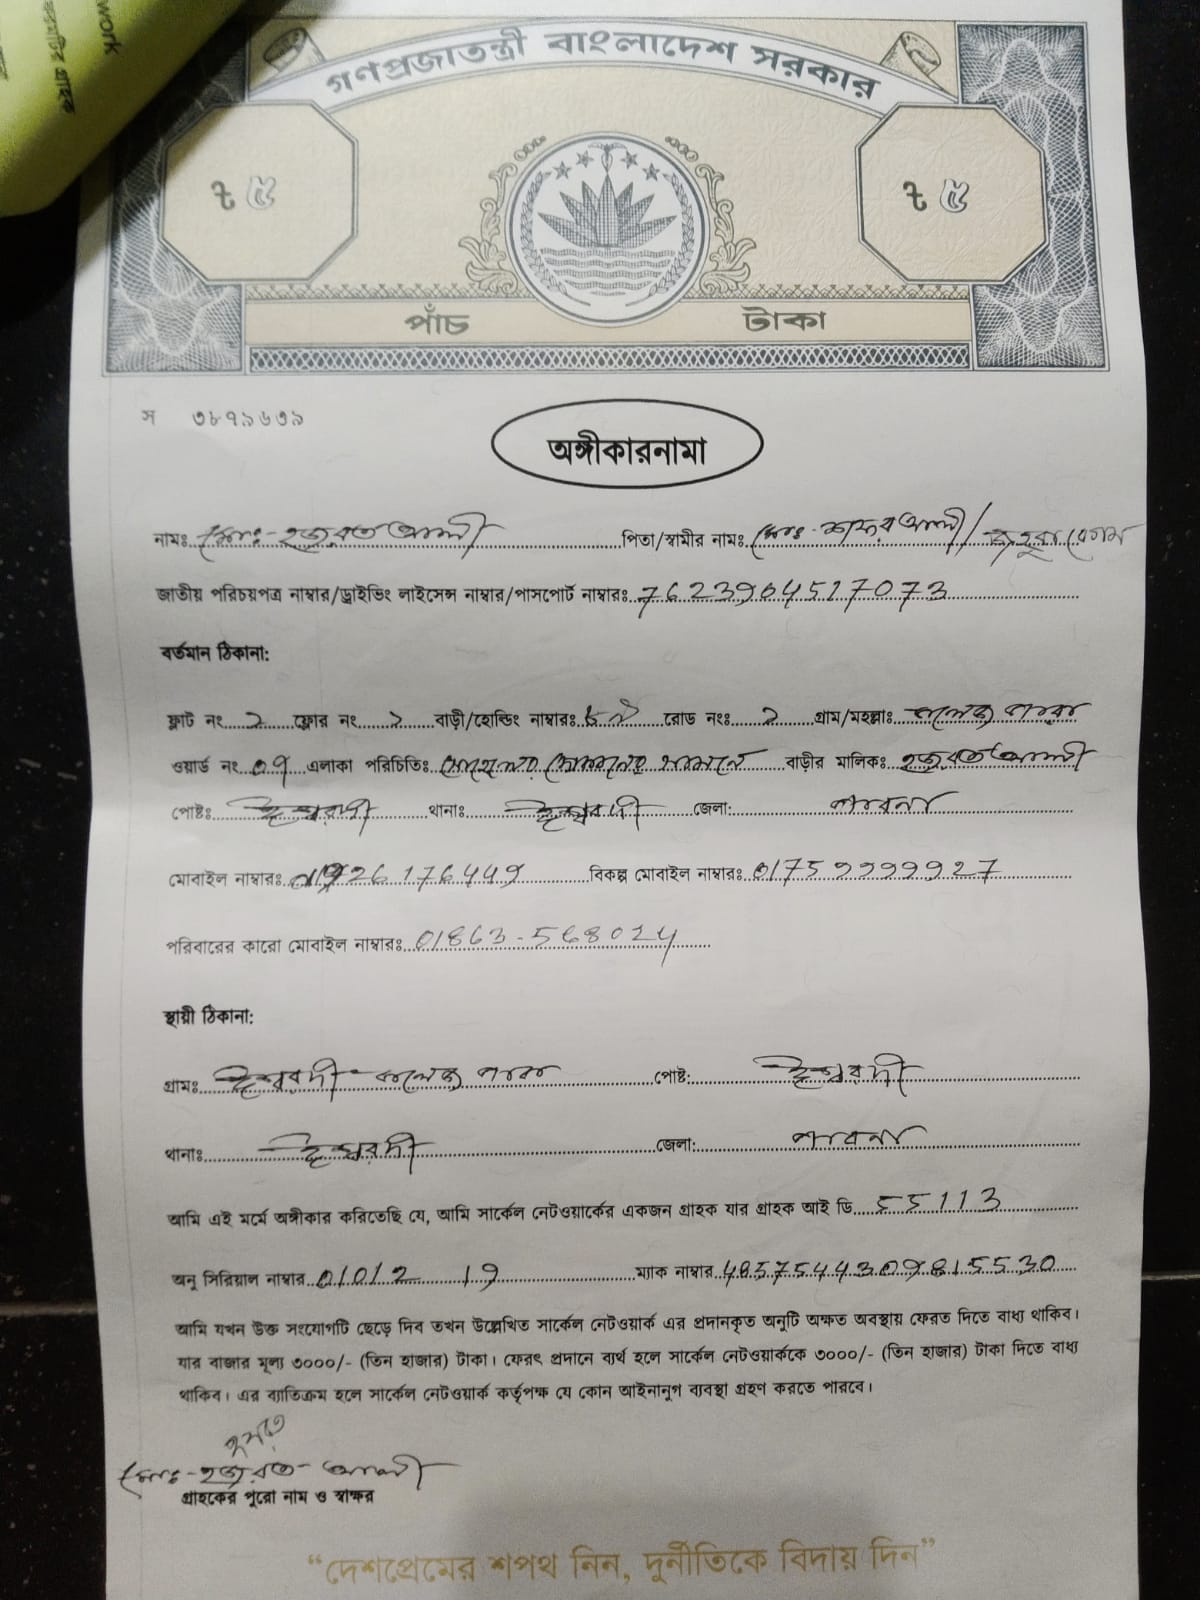 work
গণপ্রজাতন্ত্রী বাংলাদেশ সরকার
৳ ৫ ৳ ৫
পাঁচ টাকা
স ৩৮৭৯৬৩৯
অঙ্গীকারনামা
নামঃ মোঃ-হজরত আলী পিতা/স্বামীর নামঃ মোঃ- শফর আলী/ জহুরা বেগম
জাতীয় পরিচয়পত্র নাম্বার/ড্রাইভিং লাইসেন্স নাম্বার/পাসপোর্ট নাম্বারঃ 7623904517073
বর্তমান ঠিকানা:
ফ্লাট নং ২ ফ্লোর নং ২ বাড়ী/হোল্ডিং নাম্বারঃ রোড নংঃ ২ গ্রাম/মহল্লাঃ কলেজ পাড়া
ওয়ার্ড নং ০৭ এলাকা পরিচিতিঃ দোকানের সামনে বাড়ীর মালিকঃ হজরত আলী
পোষ্টঃ ঈশ্বরদী থানাঃ ঈশ্বরদী জেলা: পাবনা
মোবাইল নাম্বারঃ বিকল্প মোবাইল নাম্বারঃ
পরিবারের কারো মোবাইল নাম্বারঃ 01863-568024
স্থায়ী ঠিকানা:
গ্রামঃ ঈশ্বরদী কলেজ পাড়া পোষ্ট: ঈশ্বরদী
থানাঃ ঈশ্বরদী জেলা: পাবনা
আমি এই মর্মে অঙ্গীকার করিতেছি যে, আমি সার্কেল নেটওয়ার্কের একজন গ্রাহক যার গ্রাহক আই ডি 55113
অনু সিরিয়াল নাম্বার 01012 19 ম্যাক নাম্বার 4857544309815530
আমি যখন উক্ত সংযোগটি ছেড়ে দিব তখন উল্লেখিত সার্কেল নেটওয়ার্ক এর প্রদানকৃত অনুটি অক্ষত অবস্থায় ফেরত দিতে বাধ্য থাকিব।
যার বাজার মূল্য ৩০০০/- (তিন হাজার) টাকা। ফেরৎ প্রদানে ব্যর্থ হলে সার্কেল নেটওয়ার্ককে ৩০০০/- (তিন হাজার) টাকা দিতে বাধ্য
থাকিব। এর ব্যতিক্রম হলে সার্কেল নেটওয়ার্ক কর্তৃপক্ষ যে কোন আইনানুগ ব্যবস্থা গ্রহণ করতে পারবে।
মোঃ-হজরত- আলী
গ্রাহকের পুরো নাম ও স্বাক্ষর
“দেশপ্রেমের শপথ নিন, দুর্নীতিকে বিদায় দিন”